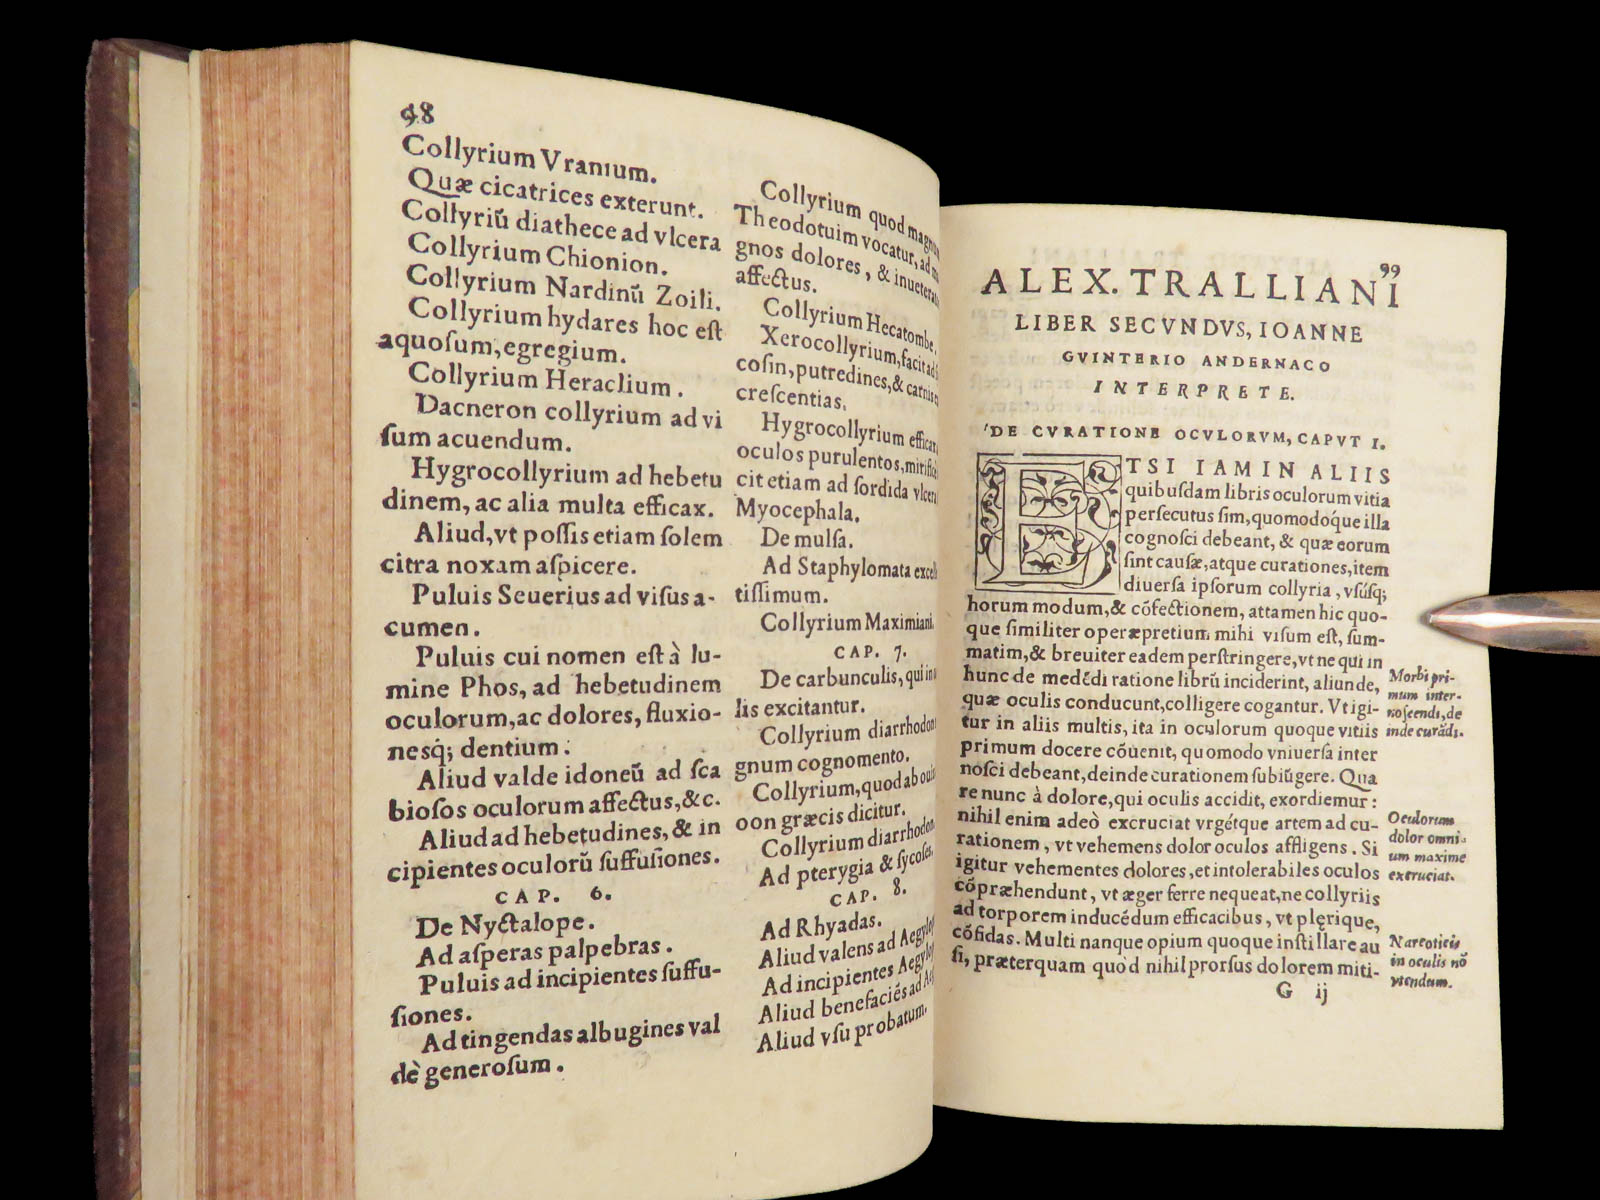 98
Collyrium Vranium.
Quæ cicatrices exterunt.
Collyriū diathece ad vlcera
Collyrium Chionion.
Collyrium Nardinū Zoili.
Collyrium hydares hoc eſt
aquoſum, egregium.
Collyrium Heraclium.
Dacneron collyrium ad vi
ſum acuendum.
Hygrocollyrium ad hebetu
dinem, ac alia multa efficax.
Aliud, vt poſſis etiam ſolem
citra noxam aſpicere.
Puluis Seuerius ad viſus a-
cumen.
Puluis cui nomen eſt à lu-
mine Phos, ad hebetudinem
oculorum, ac dolores, fluxio-
nesq; dentium.
Aliud valde idoneū ad ſca
bioſos oculorum affectus, &c.
Aliud ad hebetudines, & in
cipientes oculorū ſuffuſiones.
CAP. 6.
De Nyctalope.
Ad aſperas palpebras.
Puluis ad incipientes ſuffu-
ſiones.
Ad tingendas albugines val
dè generoſum.
Collyrium quod
Theodotuim vocatur, ad
gnos dolores, &
affectus.
Collyrium Hecatombe,
Xerocollyrium, facit ad
coſin, putredines, &
creſcentias.
Hygrocollyrium
oculos purulentos,
cit etiam ad ſordida
Myocephala.
De mulſa.
Ad Staphylomata
tiſſimum.
Collyrium Maximiani.
CAP. 7.
De carbunculis, qui
lis excitantur.
Collyrium
gnum cognomento.
Collyrium, quod ab
oon græcis dicitur.
Collyrium
Ad pterygia & ſycoſes,
CAP. 8.
Ad Rhyadas.
Aliud valens ad
Ad incipientes
Aliud benefaciēs ad
Aliud vſu probatum.
99
ALEX. TRALLIANI
LIBER SECVNDVS, IOANNE
GVINTERIO ANDERNACO
INTERPRETE.
DE CVRATIONE OCVLORVM, CAPVT I.
ETSI IAM IN ALIIS
quibuſdam libris oculorum vitia
perſecutus ſim, quomodóque illa
cognoſci debeant, & quæ eorum
ſint cauſæ, atque curationes, item
diuerſa ipſorum collyria, vſúſq;
horum modum, & cōfectionem, attamen hic quo-
que ſimiliter operæpretium mihi viſum eſt, ſum-
matim, & breuiter eadem perſtringere, vt ne qui in
hunc de medēdi ratione librū inciderint, aliunde,
quæ oculis conducunt, colligere cogantur. Vt igi-
tur in aliis multis, ita in oculorum quoque vitiis
primum docere cōuenit, quomodo vniuerſa inter
noſci debeant, deinde curationem ſubiūgere. Qua
re nunc à dolore, qui oculis accidit, exordiemur:
nihil enim adeò excruciat vrgétque artem ad cu-
rationem, vt vehemens dolor oculos affligens. Si
igitur vehementes dolores, et intolerabiles oculos
cōpræhendunt, vt æger ferre nequeat, ne collyriis
ad torporem inducēdum efficacibus, vt plęrique,
cōfidas. Multi nanque opium quoque inſtillare au
ſi, præterquam quòd nihil prorſus dolorem miti-
G ij
Morbi pri-
mum inter-
noſcendi, de
inde curādi.
Oculorum
dolor omni-
um maxime
excruciat.
Narcoticis
in oculis nō
vtendum.